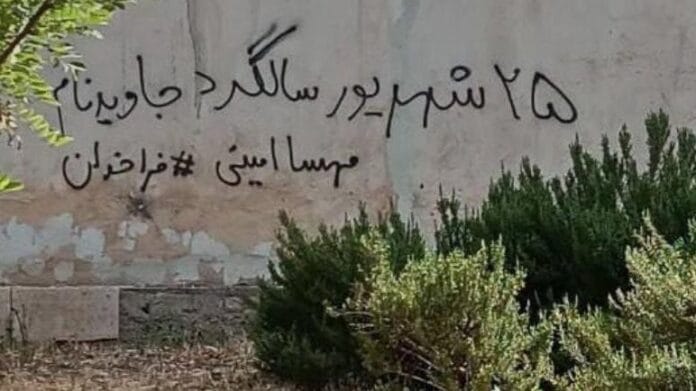 ۲۵ شهریور سالگرد جاویدنام
مهسا امینی #فراخوان